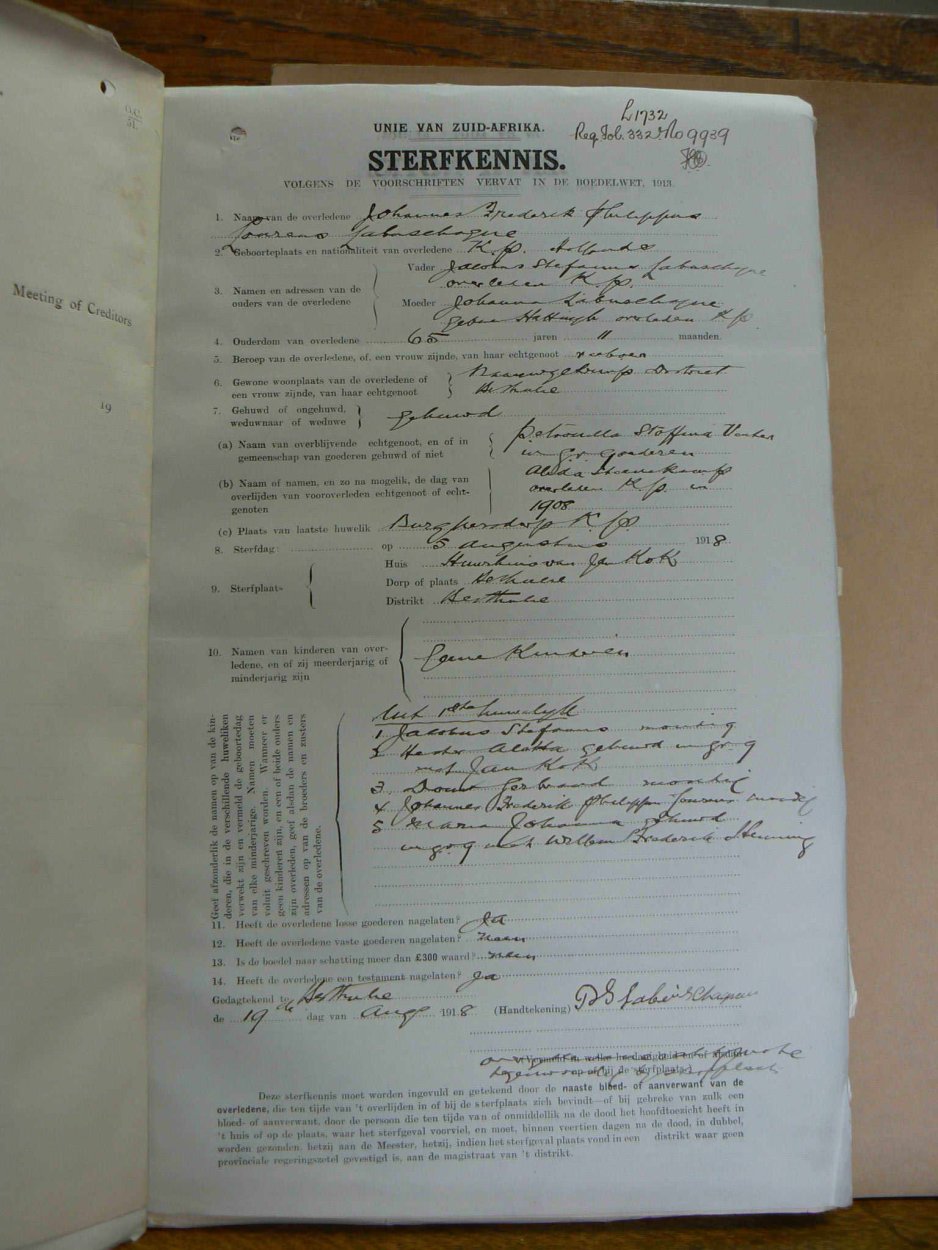 Meeting of Creditors
19
L1732
UNIE VAN ZUID-AFRIKA.
Reg. Fol. 332 No 9939
STERFKENNIS.
VOLGENS DE VOORSCHRIFTEN VERVAT IN DE BOEDELWET, 1913.
1. Naam van de overledene Johannes Frederik Philippus
Lourens Labuschagne
2. Geboorteplaats en nationaliteit van overledene K.p.
3. Namen en adressen van de ouders van de overledene
Vader Jacobus Stefanus Labuschagne
overleden K.p.
Moeder Johanna Labuschagne
geboren Hattingh overleden K.p.
4. Ouderdom van overledene 65 jaren " maanden.
5. Beroep van de overledene, of, een vrouw zijnde, van haar echtgenoot veeboer
6. Gewone woonplaats van de overledene of een vrouw zijnde, van haar echtgenoot
District
Bethulie
7. Gehuwd of ongehuwd, weduwnaar of weduwe gehuwd
(a) Naam van overblijvende echtgenoot, en of in gemeenschap van goederen gehuwd of niet
Petronella Steffina Venter
in g.v. goederen
(b) Naam of namen, en zo na mogelik, de dag van overlijden van vooroverleden echtgenoot of echtgenoten
Alida Steenekamp
overleden K.p. in
1908
(c) Plaats van laatste huwelik Burghersdorp K.p.
8. Sterfdag op 5 Augustus 1918
9. Sterfplaats
Huis Huurhuis van Jan Kok
Dorp of plaats Bethulie
Distrikt Bethulie
10. Namen van kinderen van overledene, en of zij meerderjarig of minderjarig zijn
Geene Kinderen
Geef afzonderlik de namen op van de kinderen, die in de verschillende huweliken
verwekt zijn en vermeld de geboortedag
van elke minderjarige. Namen moeten
voluit geschreven worden. Wanneer er
geen kinderen zijn, en een of beide ouders
zijn overleden, geef alsdan de namen en
adressen op van de broeders en zusters
van de overledene.
Uit 1ste huwelijk
1 Jacobus Stefanus mondig
2 Hester Aletta gehuwd in g v g
met Jan Kok
3 Douw Gerbrand mondig
4 Johannes Frederik Philippus Lourens mondig
5 Maria Johanna gehuwd
in g v g met Willem Frederik
11. Heeft de overledene losse goederen nagelaten? Ja
12. Heeft de overledene vaste goederen nagelaten? neen
13. Is de boedel naar schatting meer dan £300 waard? neen
14. Heeft de overledene een testament nagelaten? Ja
Gedagtekend te Bethulie
de 19de dag van Aug 1918 (Handtekening)
Deze sterfkennis moet worden ingevuld en getekend door de naaste bloed- of aanverwant van de
overledene, die ten tijde van 't overlijden in of bij de sterfplaats zich bevindt—of bij gebreke van zulk een
bloed- of aanverwant, door de persoon die ten tijde van of onmiddellik na de dood het hoofdtoezicht heeft in
't huis of op de plaats, waar het sterfgeval voorviel, en moet, binnen veertien dagen na de dood, in dubbel,
worden gezonden, hetzij aan de Meester, hetzij, indien het sterfgeval plaats vond in een distrikt waar geen
provinciale regeringszetel gevestigd is, aan de magistraat van 't distrikt.